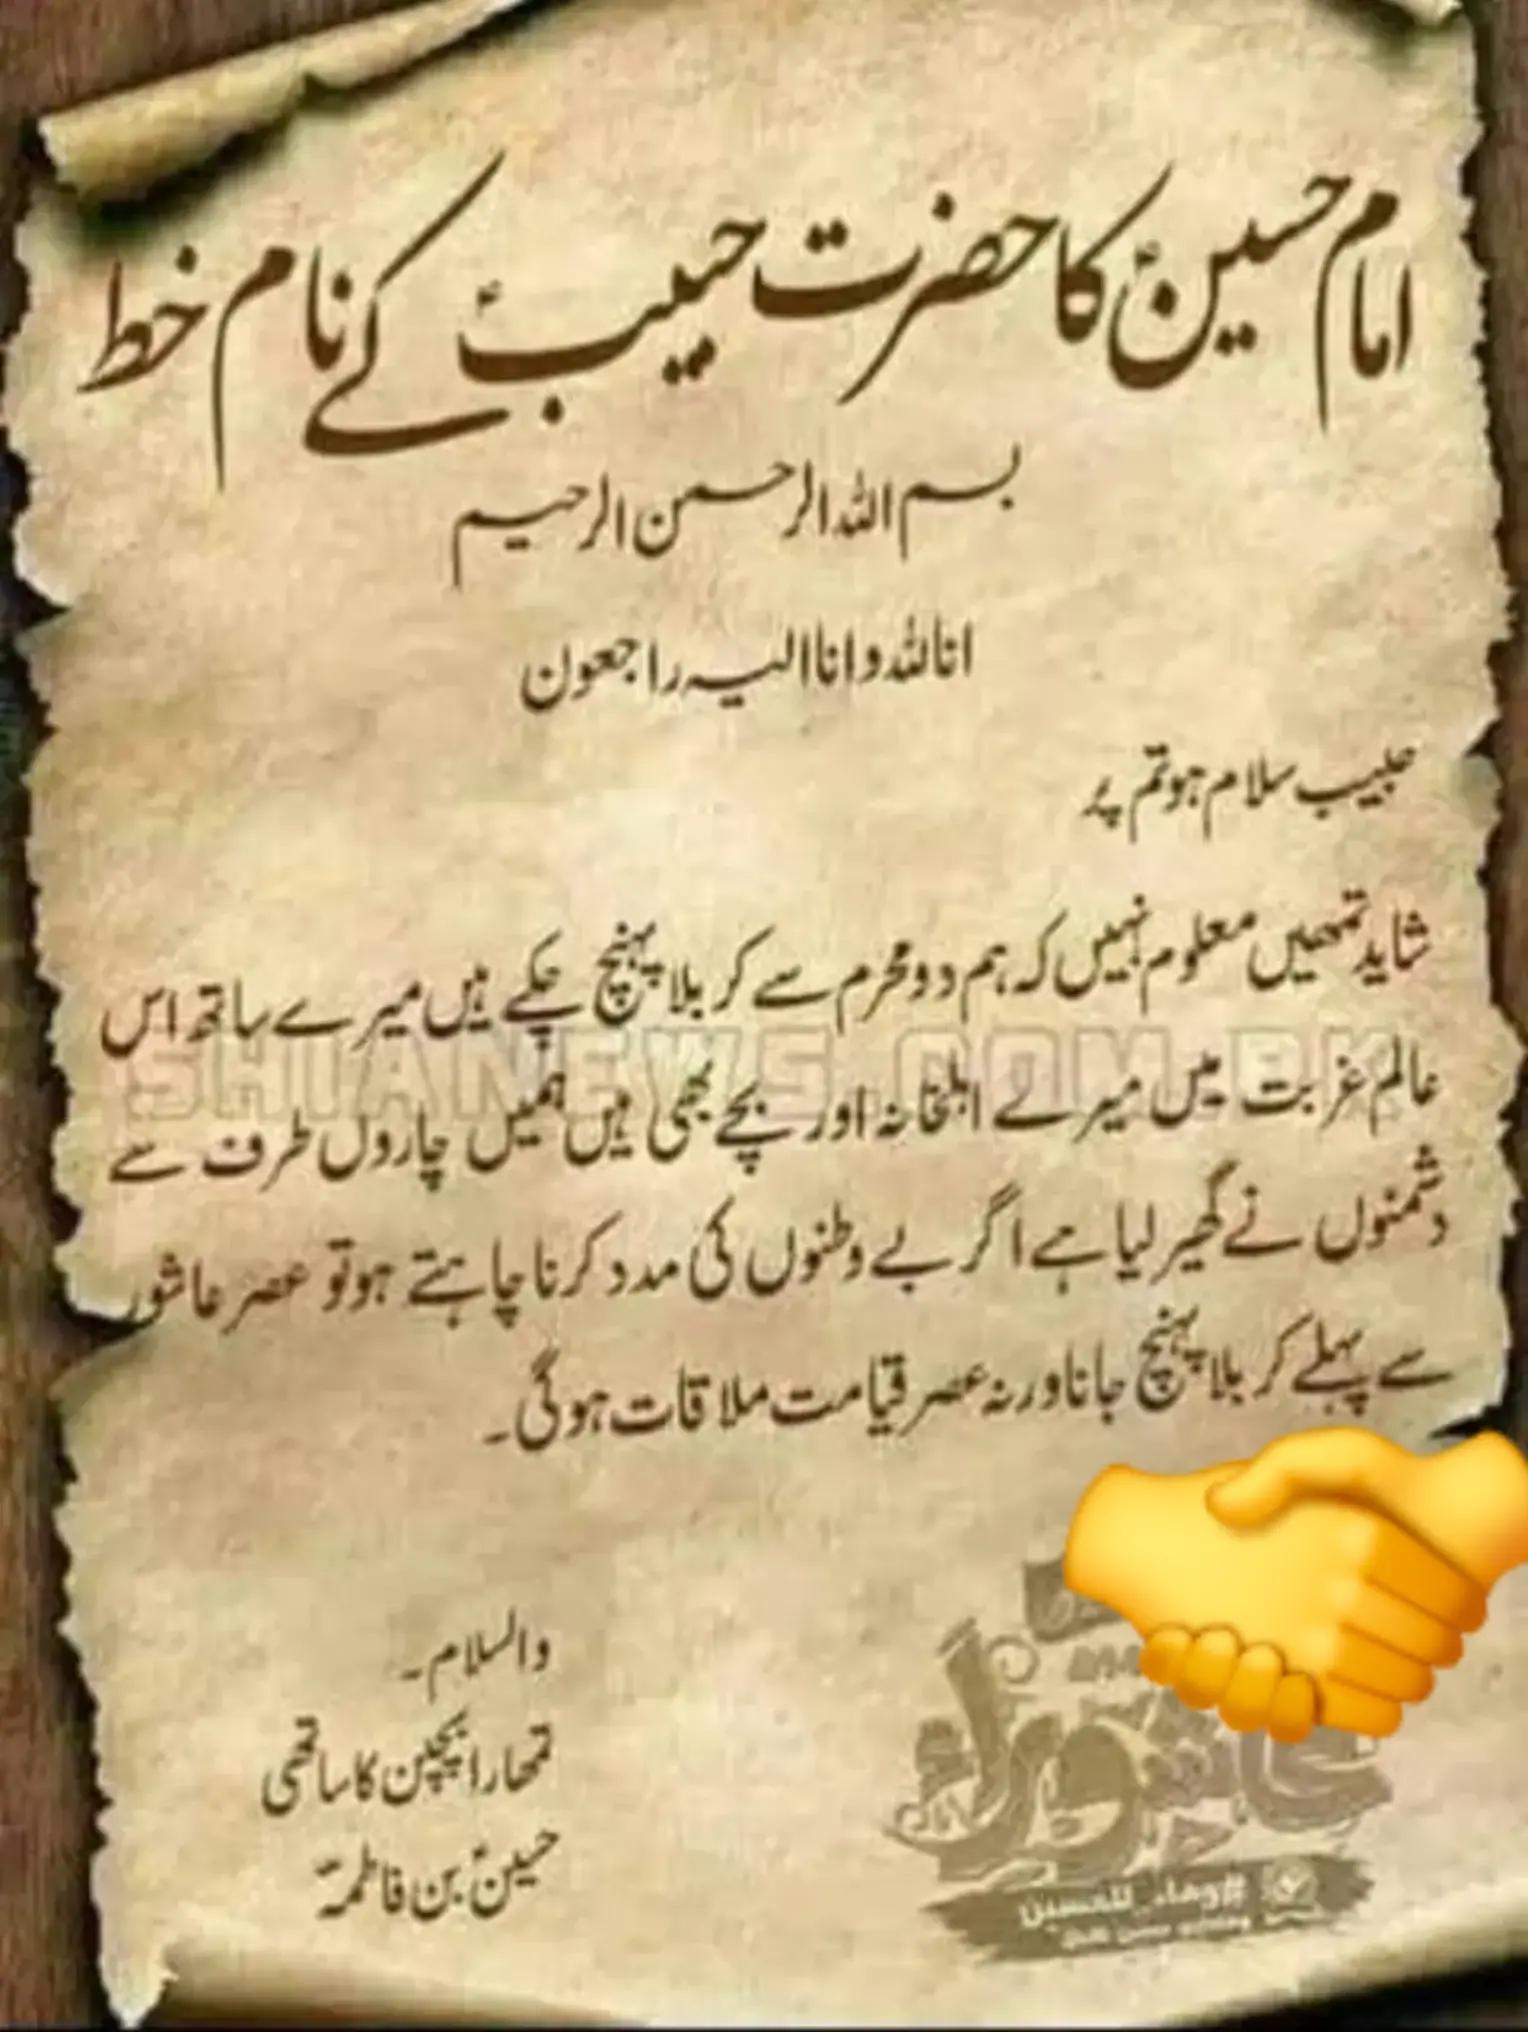 امام حسینؑ کا حضرت حبیبؑ کے نام خط
بسم اللہ الرحمن الرحیم
انا للہ وانا الیہ راجعون
حبیب سلام ہو تم پر
شاید تمھیں معلوم نہیں کہ ہم دو محرم سے کربلا پہنچ چکے ہیں میرے ساتھ اس
عالم غربت میں میرے اہلخانہ اور بچے بھی ہیں ہمیں چاروں طرف سے
دشمنوں نے گھیر لیا ہے اگر بے وطنوں کی مدد کرنا چاہتے ہو تو عصر عاشور
سے پہلے کربلا پہنچ جانا ورنہ عصر قیامت ملاقات ہوگی۔
SHIANEWS.COM.PK
والسلام۔
تمھارا بچپن کا ساتھی
حسینؑ بن فاطمہؑ
عاشوراء
#وفاء_للحسين